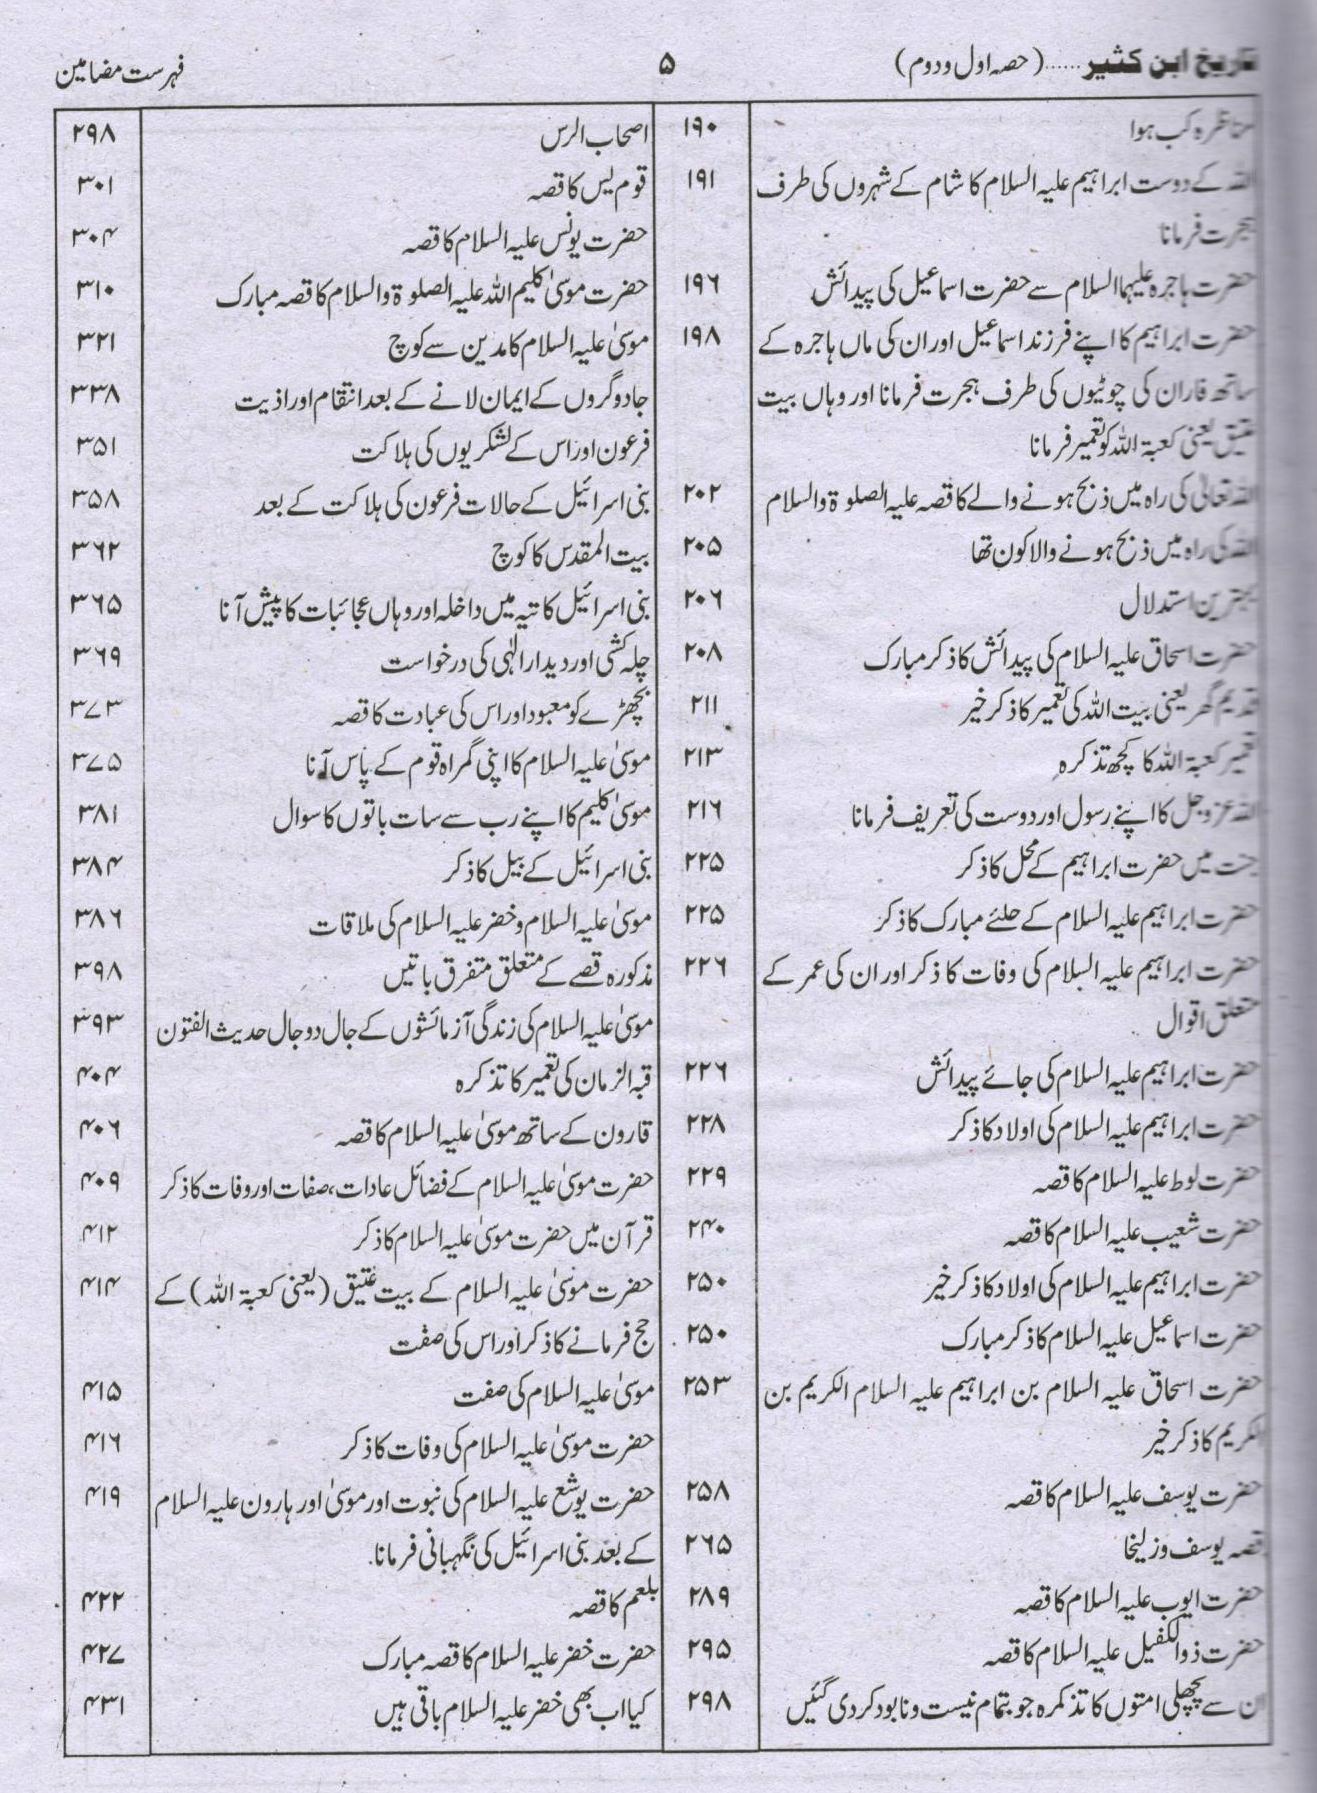 تاریخ ابن کثیر ...... (حصہ اول و دوم) ۵ فہرست مضامین
مناظرہ کب ہوا ۱۹۰
اللہ کے دوست ابراہیم علیہ السلام کا شام کے شہروں کی طرف ۱۹۱
ہجرت فرمانا
حضرت ہاجرہ علیہا السلام سے حضرت اسماعیل کی پیدائش ۱۹۶
حضرت ابراہیم کا اپنے فرزند اسماعیل اور ان کی ماں ہاجرہ کے ۱۹۸
ساتھ فاران کی چوٹیوں کی طرف ہجرت فرمانا اور وہاں بیت
عتیق یعنی کعبۃ اللہ کو تعمیر فرمانا
اللہ تعالیٰ کی راہ میں ذبح ہونے والے کا قصہ علیہ الصلوۃ والسلام ۲۰۲
اللہ کی راہ میں ذبح ہونے والا کون تھا ۲۰۵
بہترین استدلال ۲۰۶
حضرت اسحاق علیہ السلام کی پیدائش کا ذکر مبارک ۲۰۸
قدیم گھر یعنی بیت اللہ کی تعمیر کا ذکر خیر ۲۱۱
تعمیر کعبۃ اللہ کا کچھ تذکرہ ۲۱۳
اللہ عزوجل کا اپنے رسول اور دوست کی تعریف فرمانا ۲۱۶
جنت میں حضرت ابراہیم کے محل کا ذکر ۲۲۵
حضرت ابراہیم علیہ السلام کے حلئے مبارک کا ذکر ۲۲۵
حضرت ابراہیم علیہ السلام کی وفات کا ذکر اور ان کی عمر کے ۲۲۶
متعلق اقوال
حضرت ابراہیم علیہ السلام کی جائے پیدائش ۲۲۶
حضرت ابراہیم علیہ السلام کی اولاد کا ذکر ۲۲۸
حضرت لوط علیہ السلام کا قصہ ۲۲۹
حضرت شعیب علیہ السلام کا قصہ ۲۴۰
حضرت ابراہیم علیہ السلام کی اولاد کا ذکر خیر ۲۵۰
حضرت اسماعیل علیہ السلام کا ذکر مبارک ۲۵۰
حضرت اسحاق علیہ السلام بن ابراہیم علیہ السلام الکریم بن ۲۵۳
الکریم کا ذکر خیر
حضرت یوسف علیہ السلام کا قصہ ۲۵۸
قصہ یوسف وزلیخا ۲۶۵
حضرت ایوب علیہ السلام کا قصہ ۲۸۹
حضرت ذوالکفیل علیہ السلام کا قصہ ۲۹۵
ان سے پچھلی امتوں کا تذکرہ جو بتمام نیست و نابود کر دی گئیں ۲۹۸
اصحاب الرس ۲۹۸
قوم یس کا قصہ ۳۰۱
حضرت یونس علیہ السلام کا قصہ ۳۰۴
حضرت موسیٰ کلیم اللہ علیہ الصلوۃ والسلام کا قصہ مبارک ۳۱۰
موسیٰ علیہ السلام کا مدین سے کوچ ۳۲۱
جادوگروں کے ایمان لانے کے بعد انتقام اور اذیت ۳۳۸
فرعون اور اس کے لشکریوں کی ہلاکت ۳۵۱
بنی اسرائیل کے حالات فرعون کی ہلاکت کے بعد ۳۵۸
بیت المقدس کا کوچ ۳۶۲
بنی اسرائیل کا تیہ میں داخلہ اور وہاں عجائبات کا پیش آنا ۳۶۵
چلہ کشی اور دیدار الٰہی کی درخواست ۳۶۹
بچھڑے کو معبود اور اس کی عبادت کا قصہ ۳۷۳
موسیٰ علیہ السلام کا اپنی گمراہ قوم کے پاس آنا ۳۷۵
موسیٰ کلیم کا اپنے رب سے سات باتوں کا سوال ۳۸۱
بنی اسرائیل کے بیل کا ذکر ۳۸۴
موسیٰ علیہ السلام و خضر علیہ السلام کی ملاقات ۳۸۶
مذکورہ قصے کے متعلق متفرق باتیں ۳۹۸
موسیٰ علیہ السلام کی زندگی آزمائشوں کے جال دو جال حدیث الفتون ۳۹۳
قبہ الزمان کی تعمیر کا تذکرہ ۴۰۴
قارون کے ساتھ موسیٰ علیہ السلام کا قصہ ۴۰۶
حضرت موسیٰ علیہ السلام کے فضائل عادات، صفات اور وفات کا ذکر ۴۰۹
قرآن میں حضرت موسیٰ علیہ السلام کا ذکر ۴۱۲
حضرت موسیٰ علیہ السلام کے بیت عتیق (یعنی کعبۃ اللہ) کے ۴۱۴
حج فرمانے کا ذکر اور اس کی صفت
موسیٰ علیہ السلام کی صفت ۴۱۵
حضرت موسیٰ علیہ السلام کی وفات کا ذکر ۴۱۶
حضرت یوشع علیہ السلام کی نبوت اور موسیٰ اور ہارون علیہ السلام ۴۱۹
کے بعد بنی اسرائیل کی نگہبانی فرمانا.
بلعم کا قصہ ۴۲۲
حضرت خضر علیہ السلام کا قصہ مبارک ۴۲۷
کیا اب بھی خضر علیہ السلام باقی ہیں ۴۳۱